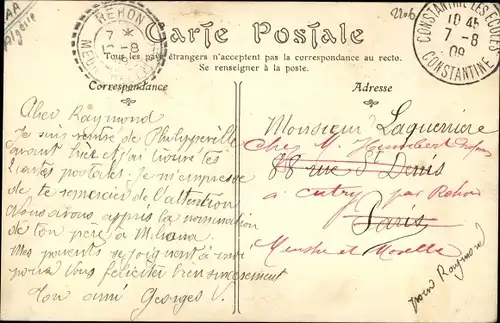 AA
Algérie
2206
REHON
7 *
10-8
CONSTANTINE LES ECUEES
10 45
7-8
09
CONSTANTINE
Carte Postale
Tous les pays étrangers n'acceptent pas la correspondance au recto.
Se renseigner à la poste.
Correspondance
Cher Raymond
Je suis rentré de Philippeville
avant hier et j'ai trouvé les
cartes postales; je m'empresse
de te remercier de l'attention
Nous avons appris la nomination
de ton père à Miliana
Mes parents se joignent à moi
pour vous féliciter bien sincèrement
Ton ami Georges V.
Adresse
Monsieur Laguerriere
Chez M. Humbert
88 rue St Denis
à Cutry par Rehon
Paris
Meurthe et Moselle
pour Raymond